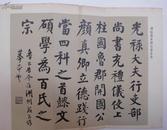 光祿大夫行吏部
尚書充禮儀使上
柱國魯郡開國公
顏真卿立德踐行
當四科之首懿文
碩學為百氏之
宗